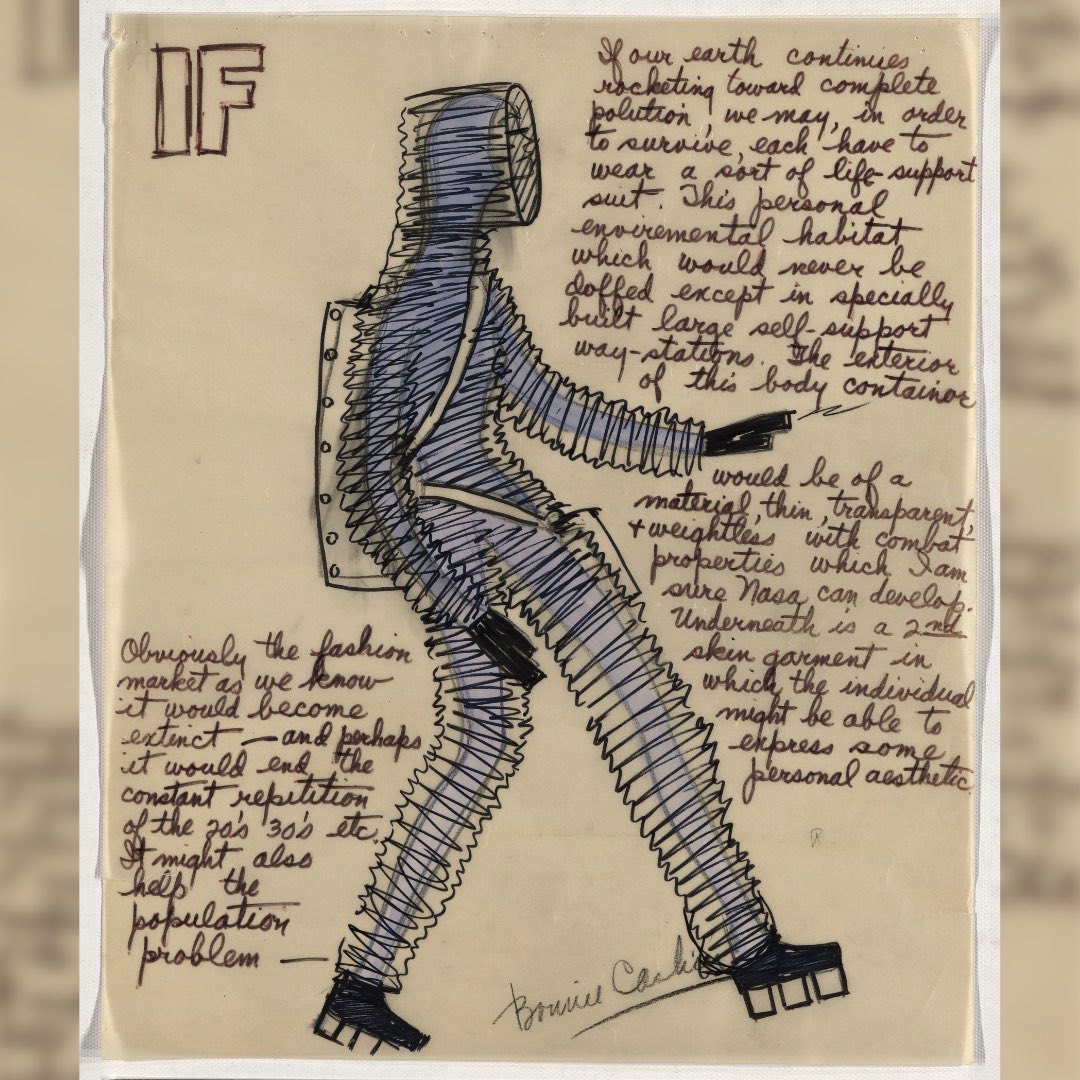 IF
If our earth continues
rocketing toward complete
polution, we may, in order
to survive, each have to
wear a sort of life-support
suit. This personal
enviremental habitat
which would never be
doffed except in specially
built large self-support
way-stations. The exterior
of this body container
would be of a
material, thin, transparent,
+ weightless with combat
properties which I am
sure Nasa can develop.
Underneath is a 2nd
skin garment in
which the individual
might be able to
express some
personal aesthetic.
Obviously the fashion
market as we know
it would become
extinct — and perhaps
it would end the
constant repitition
of the 20's 30's etc.
It might also
help the
population
problem —
Bonnie Cashin